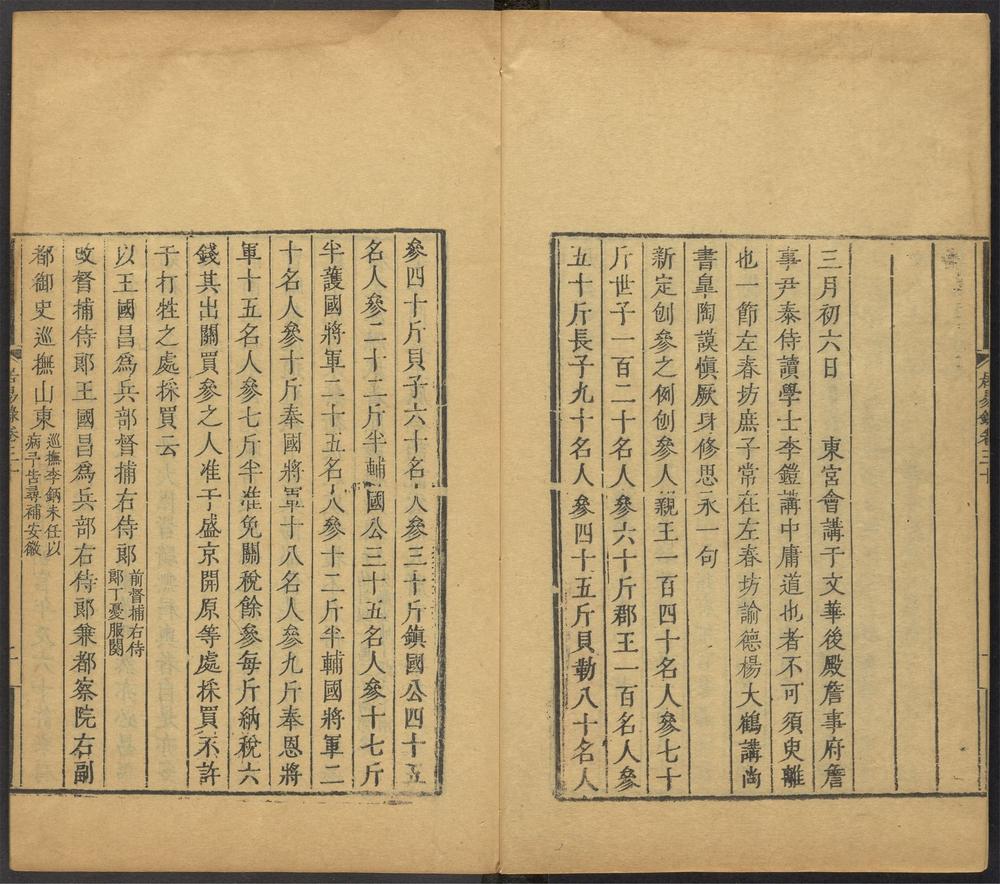 三月初六日　東宮會講于文華後殿詹事府詹
事尹泰侍讀學士李鎧講中庸道也者不可須臾離
也一節左春坊庶子常在左春坊諭德楊大鶴講尚
書臯陶謨愼厥身修思永一句
新定刨參之例刨參人親王一百四十名人參七十
斤世子一百二十名人參六十斤郡王一百名人參
五十斤長子九十名人參四十五斤貝勒八十名人
參四十斤貝子六十名人參三十斤鎮國公四十五
名人參二十二斤半輔國公三十五名人參十七斤
半護國將軍二十五名人參十二斤半輔國將軍二
十名人參十斤奉國將軍十八名人參九斤奉恩將
軍十五名人參七斤半准免關稅餘參每斤納稅六
錢其出關買參之人准于盛京開原等處採買不許
于打牲之處採買云
以王國昌爲兵部督捕右侍郞前督捕右侍
郞丁憂服闋
改督捕侍郞王國昌爲兵部右侍郞兼都察院右副
都御史巡撫山東巡撫李鈵未任以
病予告尋補安徽